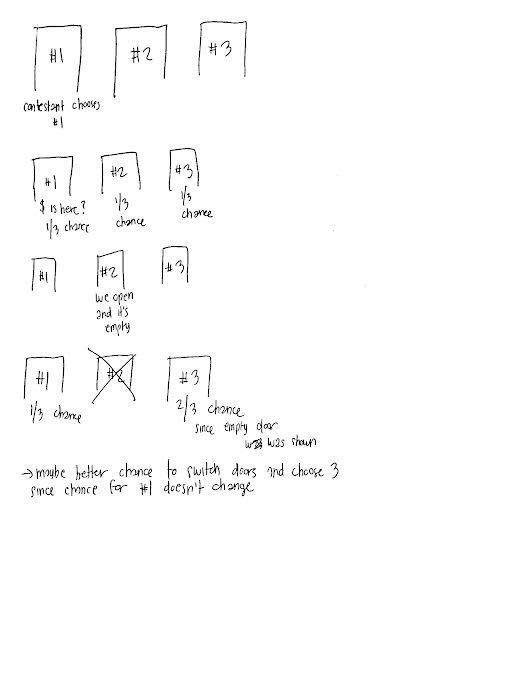 #1 #2 #3
contestant chooses
#1
#1 #2 #3
$ is here? 1/3 1/3
1/3 chance chance chance
#1 #2 #3
we open
and it's
empty
#1 #2 #3
1/3 chance 2/3 chance
since empty door
was shown
→ maybe better chance to switch doors and choose 3
since chance for #1 doesn't change